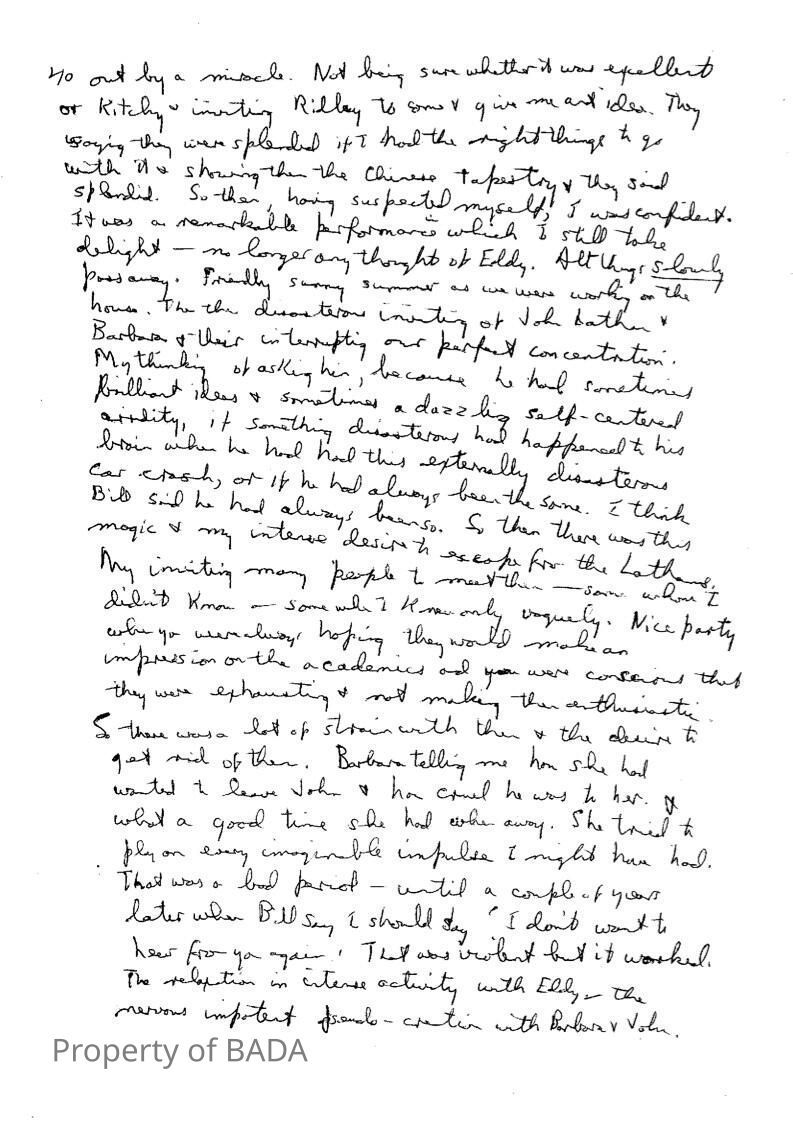 40 out by a miracle. Not being sure whether it was excellent
or Kitchy & inviting Ridley to come & give me an idea. They
saying they were splendid if I had the right things to go
with it & showing them the Chinese tapestry & they said
splendid. So then, having suspected myself, I was confident.
It was a remarkable performance which I still take
delight — no longer any thought of Eddy. All things slowly
pass away. Friendly sunny summer as we were working on the
house. The the disasterous inviting of John Latham &
Barbara & their interrupting our perfect concentration.
My thinking of asking him, because he had sometimes
brilliant ideas & sometimes a dazzling self-centered
aridity, if something disasterous had happened to his
brain when he had had this externally disasterous
car crash, or if he had always been the same. I think
Bill said he had always been so. So then there was this
magic & my intense desire to escape from the Lathams.
My inviting many people to meet them — some whom I
didn't know — some who I knew only vaguely. Nice party
when you were always hoping they would make an
impression on the academics and you were conscious that
they were exhausting & not making them enthusiastic.
So there was a lot of strain with them & the desire to
get rid of them. Barbara telling me how she had
wanted to leave John & how cruel he was to her. &
what a good time she had when away. She tried to
play on every imaginable impulse I might have had.
That was a bad period — until a couple of years
later when Bill say I should say 'I don't want to
hear from you again'. That was violent but it worked.
The relaxation in intense activity with Eddy — the
nervous impotent pseudo-creation with Barbara & John.
Property of BADA